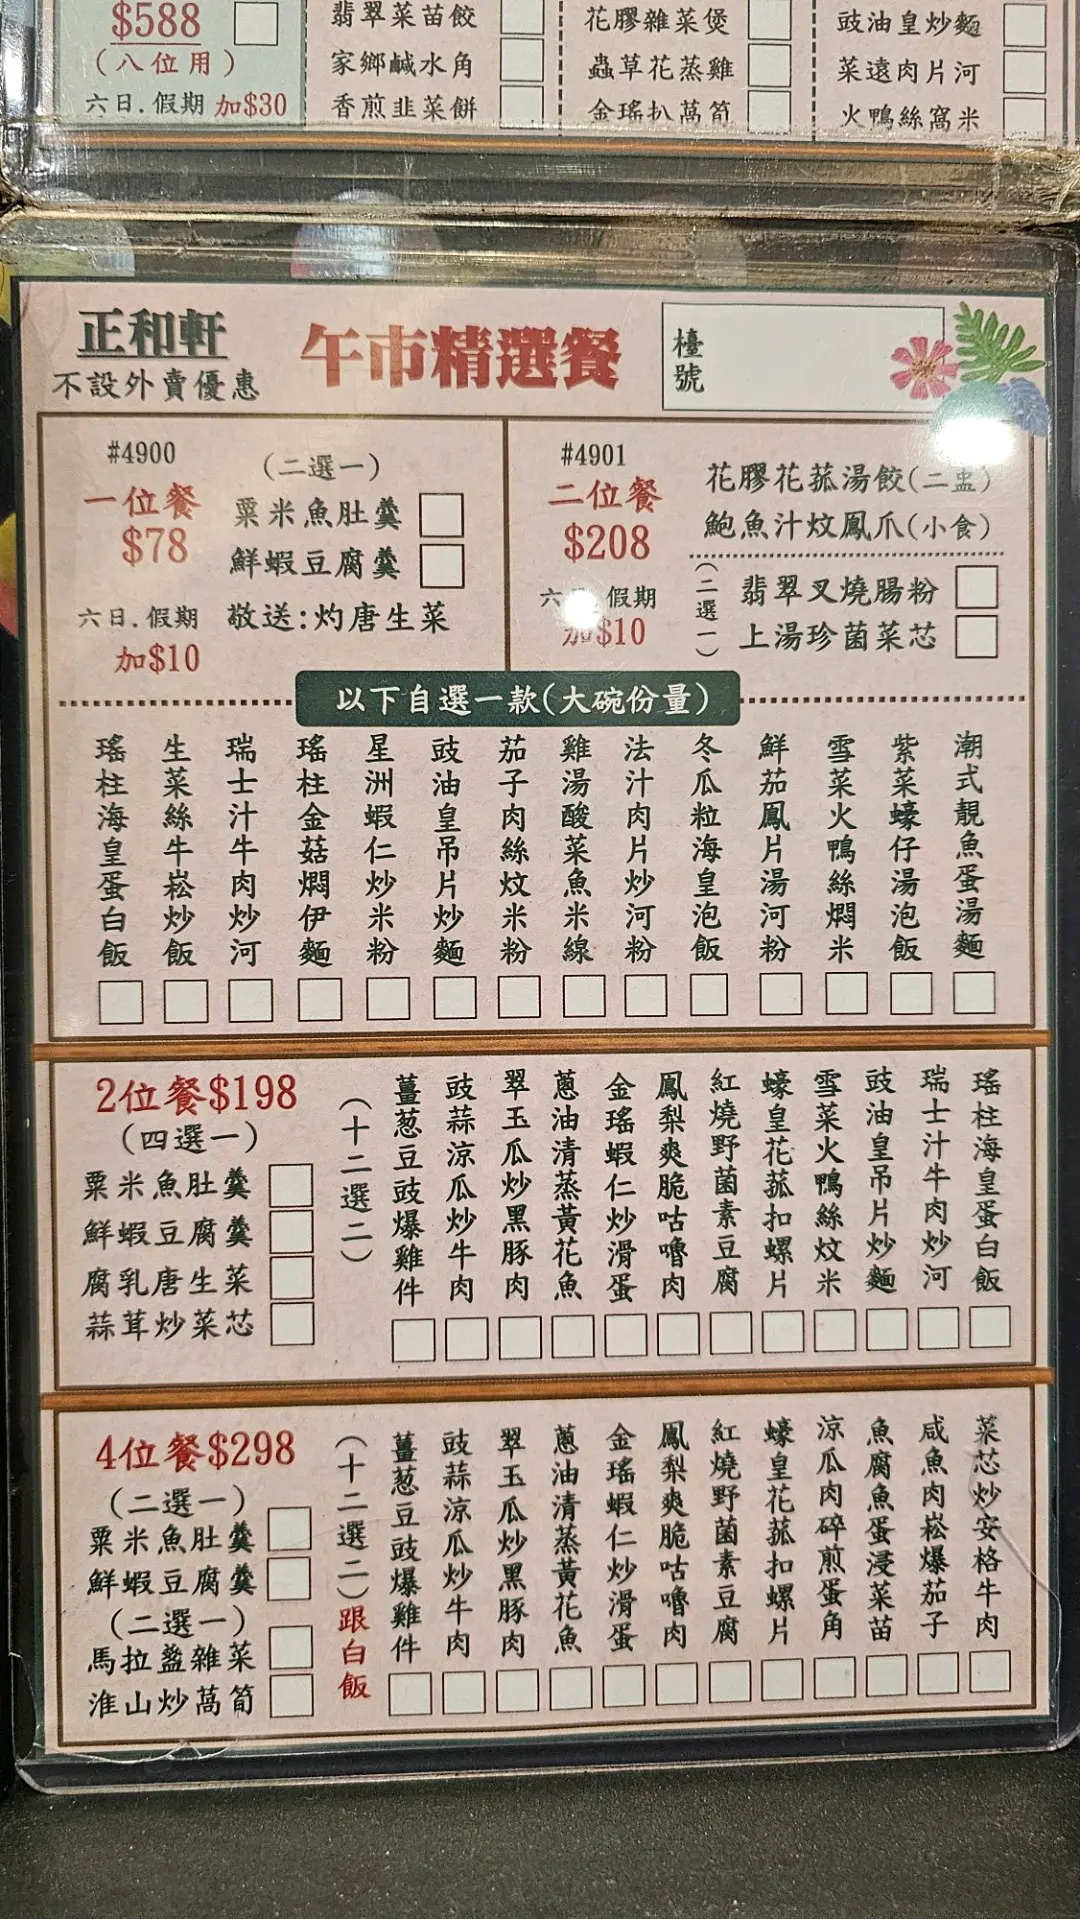 $588
(八位用)
六日.假期 加$30
翡翠菜苗餃
家鄉鹹水角
香煎韭菜餅
花膠雜菜煲
蟲草花蒸雞
金瑤扒萵筍
豉油皇炒麵
菜遠肉片河
火鴨絲窩米
正和軒
不設外賣優惠
午市精選餐
檯號
#4900
一位餐
$78
六日.假期
加$10
(二選一)
粟米魚肚羹
鮮蝦豆腐羹
敬送:灼唐生菜
#4901
二位餐
$208
六日.假期
加$10
花膠花菰湯餃(二盅)
鮑魚汁炆鳳爪(小食)
(二選一)
翡翠叉燒腸粉
上湯珍菌菜芯
以下自選一款(大碗份量)
瑤柱海皇蛋白飯
生菜絲牛崧炒飯
瑞士汁牛肉炒河
瑤柱金菇燜伊麵
星洲蝦仁炒米粉
豉油皇吊片炒麵
茄子肉絲炆米粉
雞湯酸菜魚米線
法汁肉片炒河粉
冬瓜粒海皇泡飯
鮮茄鳳片湯河粉
雪菜火鴨絲燜米
紫菜蠔仔湯泡飯
潮式靚魚蛋湯麵
2位餐$198
(四選一)
粟米魚肚羹
鮮蝦豆腐羹
腐乳唐生菜
蒜茸炒菜芯
(十二選二)
薑葱豆豉爆雞件
豉蒜涼瓜炒牛肉
翠玉瓜炒黑豚肉
蔥油清蒸黃花魚
金瑤蝦仁炒滑蛋
鳳梨爽脆咕嚕肉
紅燒野菌素豆腐
蠔皇花菰扣螺片
雪菜火鴨絲炆米
豉油皇吊片炒麵
瑞士汁牛肉炒河
瑤柱海皇蛋白飯
4位餐$298
(二選一)
粟米魚肚羹
鮮蝦豆腐羹
(二選一)
馬拉盞雜菜
淮山炒萵筍
(十二選二)跟白飯
薑葱豆豉爆雞件
豉蒜涼瓜炒牛肉
翠玉瓜炒黑豚肉
蔥油清蒸黃花魚
金瑤蝦仁炒滑蛋
鳳梨爽脆咕嚕肉
紅燒野菌素豆腐
蠔皇花菰扣螺片
涼瓜肉碎煎蛋角
魚腐魚蛋浸菜苗
咸魚肉崧爆茄子
菜芯炒安格牛肉